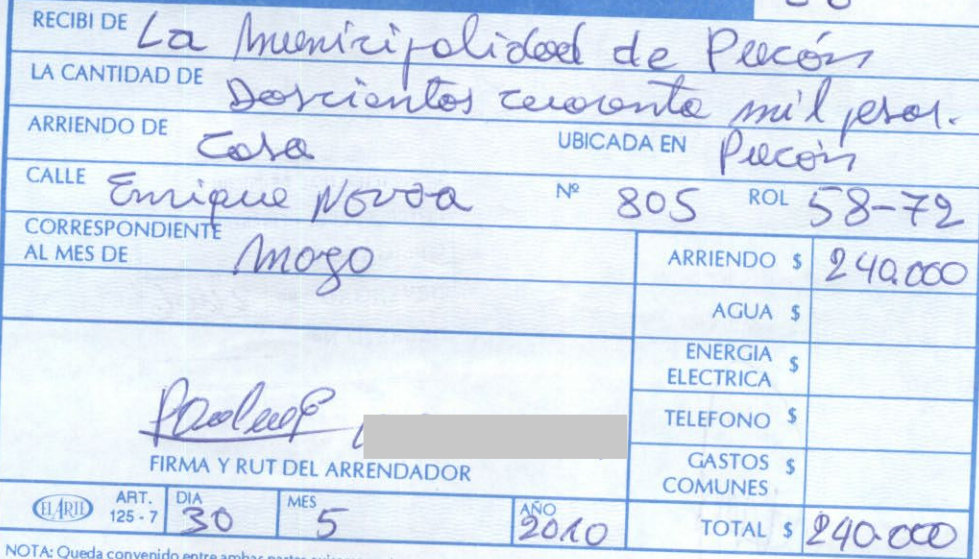 RECIBI DE La Municipalidad de Pucón
LA CANTIDAD DE Doscientos cuarenta mil pesos.
ARRIENDO DE Casa UBICADA EN Pucón
CALLE Enrique Novoa Nº 805 ROL 58-72
CORRESPONDIENTE
AL MES DE Mayo
ARRIENDO $ 240.000
AGUA $
ENERGIA
ELECTRICA $
TELEFONO $
GASTOS
COMUNES $
FIRMA Y RUT DEL ARRENDADOR
EL ARTE ART. 125 - 7 DIA 30 MES 5 AÑO 2010 TOTAL $ 240.000
NOTA: Queda convenido entre ambas partes